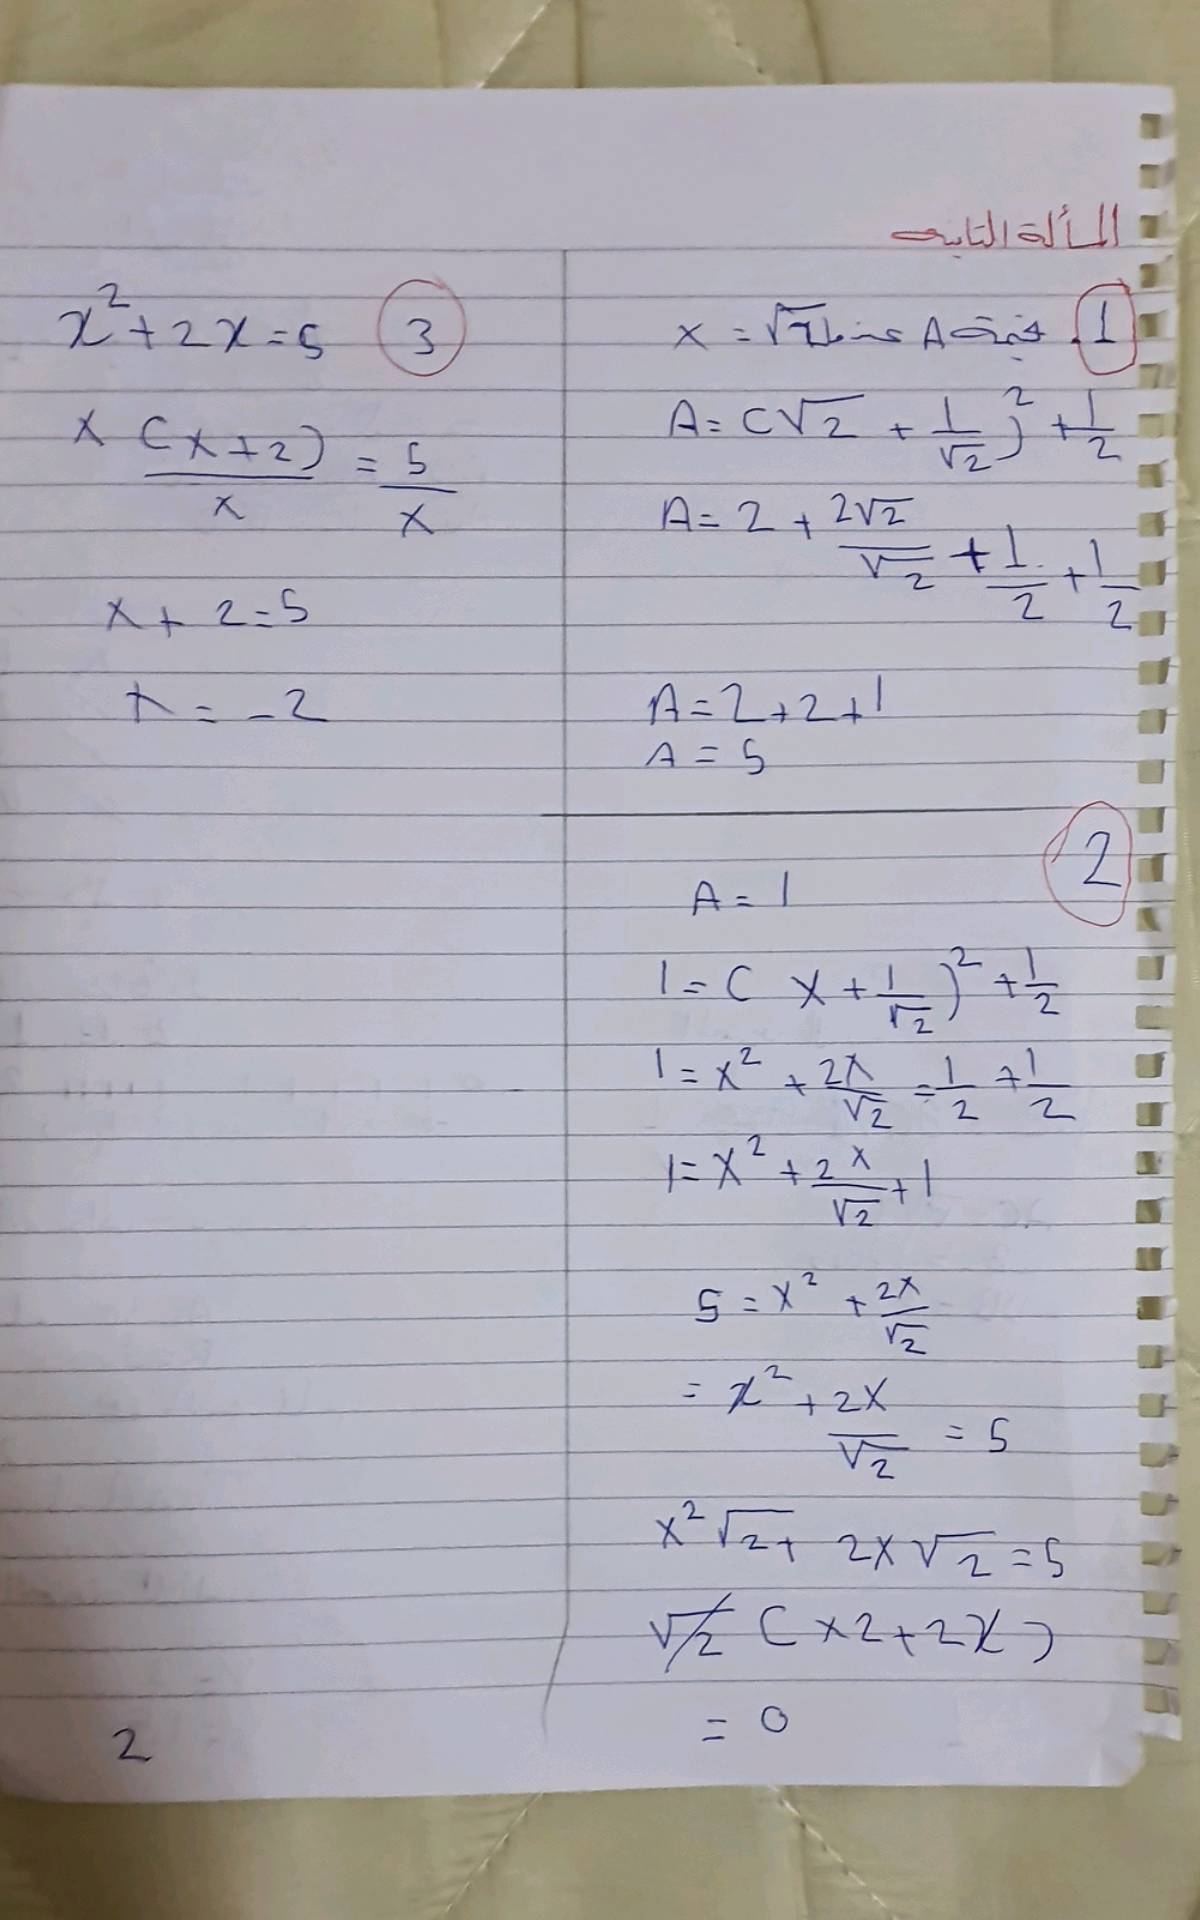 المسألة الثانية
1. قيمة A عندما x = √2
A = (√2 + 1/√2)² + 1/2
A = 2 + 2√2/√2 + 1/2 + 1/2
A = 2 + 2 + 1
A = 5
2
A = 1
1 = ( x + 1/√2 )² + 1/2
1 = x² + 2x/√2 = 1/2 + 1/2
1 = x² + 2x/√2 + 1
5 = x² + 2x/√2
= x² + 2x/√2 = 5
x²√2 + 2x√2 = 5
√2 (x2 + 2x)
= 0
3
x² + 2x = 5
x (x + 2)/x = 5/x
x + 2 = 5
x = -2
2